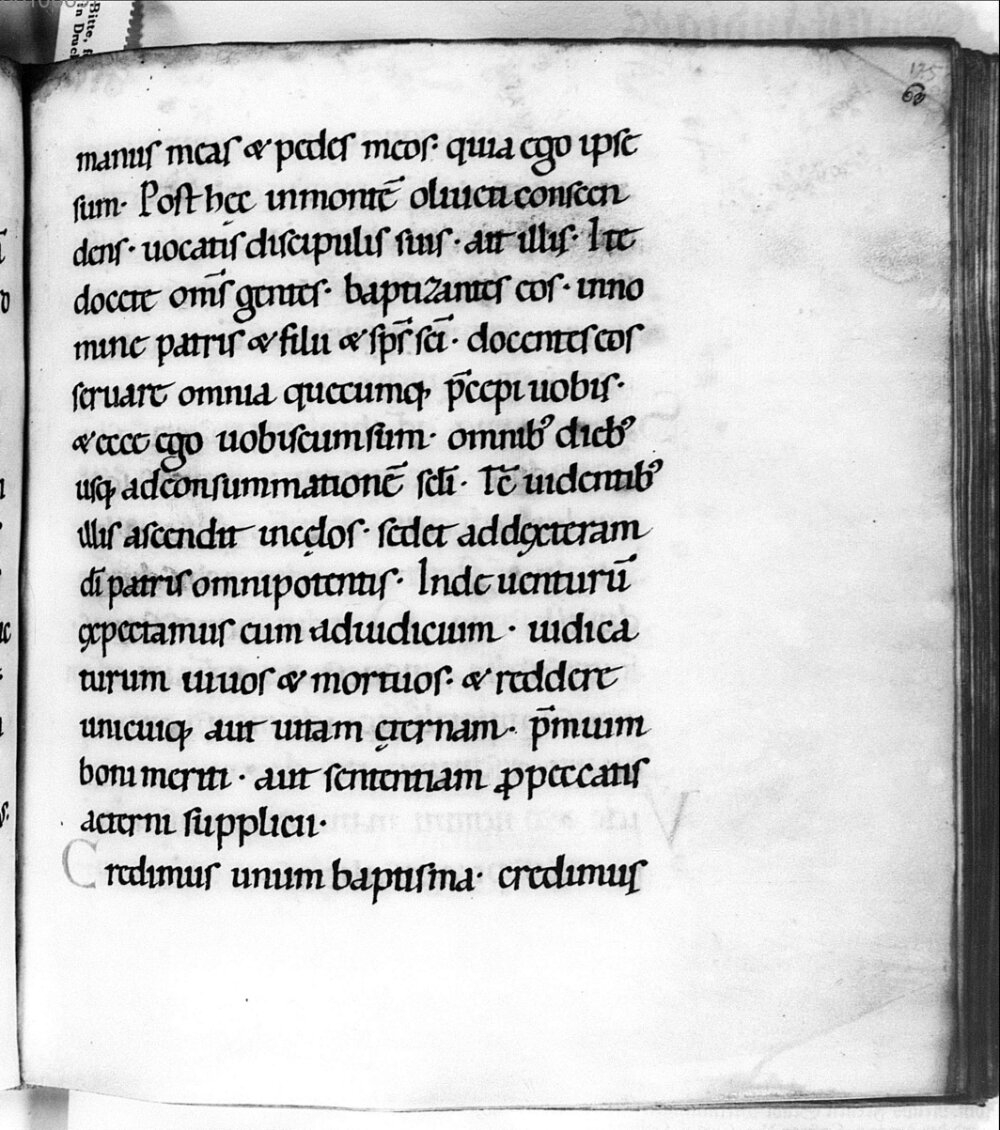 175
63
manuſ meaſ & pedeſ meoſ· quia ego ipſe
ſum· Poſt hec inmontē oliueti conſcen
denſ· uocatiſ diſcipuliſ ſuiſ· ait illiſ· Ite
docete om̄ſ genteſ· baptizanteſ eoſ· inno
mine patriſ & filii & ſp̄ſ ſc̄i· docenteſ eoſ
ſeruare omnia quecumq; p̄cepi uobiſ·
& ecce ego uobiſcum ſum· omnib; dieb;
uſq; adconſummationē ſc̄li· Tc̄ uidentib;
illiſ aſcendit incęloſ· ſedet addęxteram
dī patriſ omnipotentiſ· Inde uenturū
ęxpectamuſ eum adiudicium· iudica
turum uiuoſ & mortuoſ· & reddere
unicuiq; aut uitam ęternam· p̄mium
boni meriti· aut ſententiam ꝓpeccatiſ
aeterni ſupplicii·
Credimuſ unum baptiſma· credimuſ